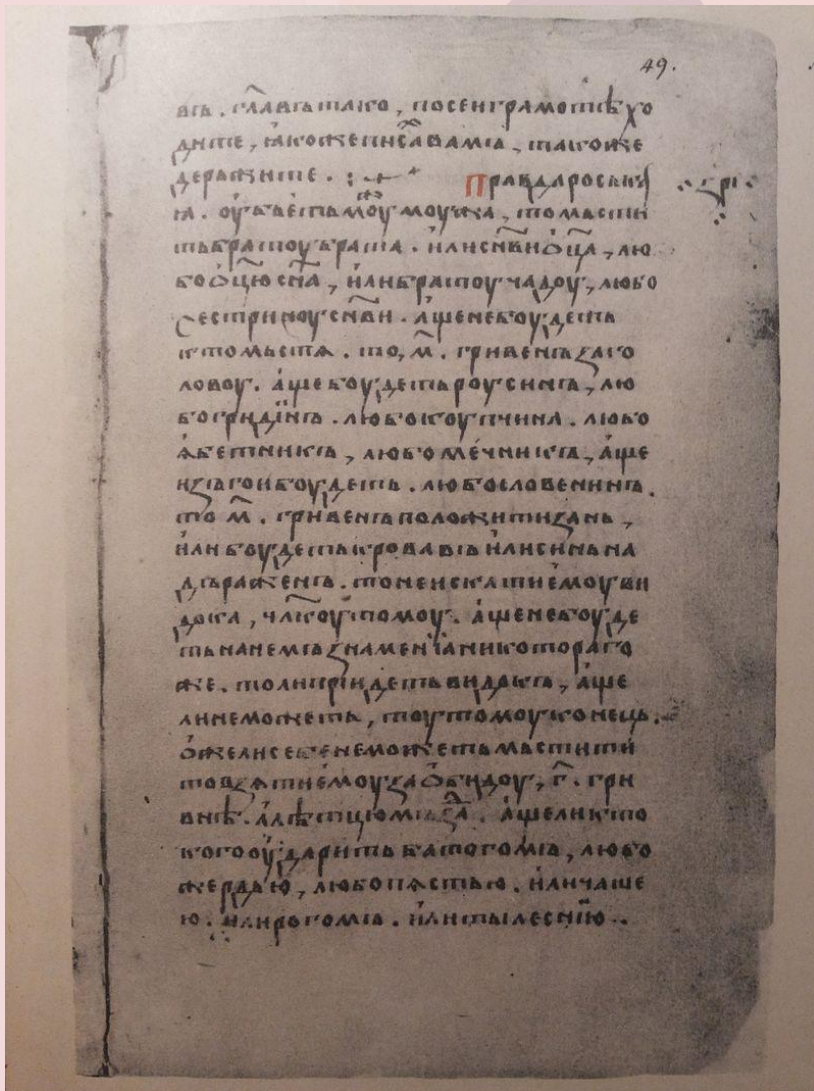 49.
въ. гл҃авъ тако, по сеи грамотѣ хо
дите, ꙗкоже писа̑ вамъ, такоже
держите. правда роськи
ꙗ. оубьеть моуⷤ моужа, то мьсти
ть братоу брата. или сн҃ви ѡц҃а, лю
бо ѡц҃ю сн҃а, или братоу чадоу, любо
сестриноу сн҃ви. аще не боудеть
кто мьстѧ. то, м҃. гривенъ за го
ловоу. аще боудеть роусинъ, лю
бо гридинъ. любо коупчина. любо
ѧбетникъ, любо мечникъ, аще
изъгои боудеть. любо словенинъ.
то м҃. гривенъ положити за нь,
или боудеть кровавъ или синь на
дъраженъ. то не искати емоу ви
дока, чл҃коу томоу. аще не боуде
ть на немъ знаменіа никотораго
же. то ли пріидеть видокъ, аще
ли не можеть, тоу томоу конець.
ѡже ли себе не можеть мьстити
то взѧти емоу за ѡбидоу, г҃. гри
внѣ. а лѣтцю мъзда. аще ли кто
кого оударить батогомъ, любо
жердью, любо пѧстью, или чаше
ю. или рогомъ. или тылеснію.